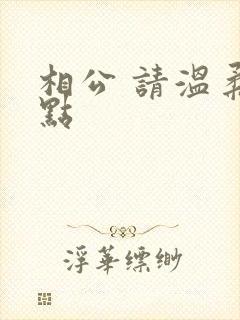 相公 請溫柔
點
浮華縹緲